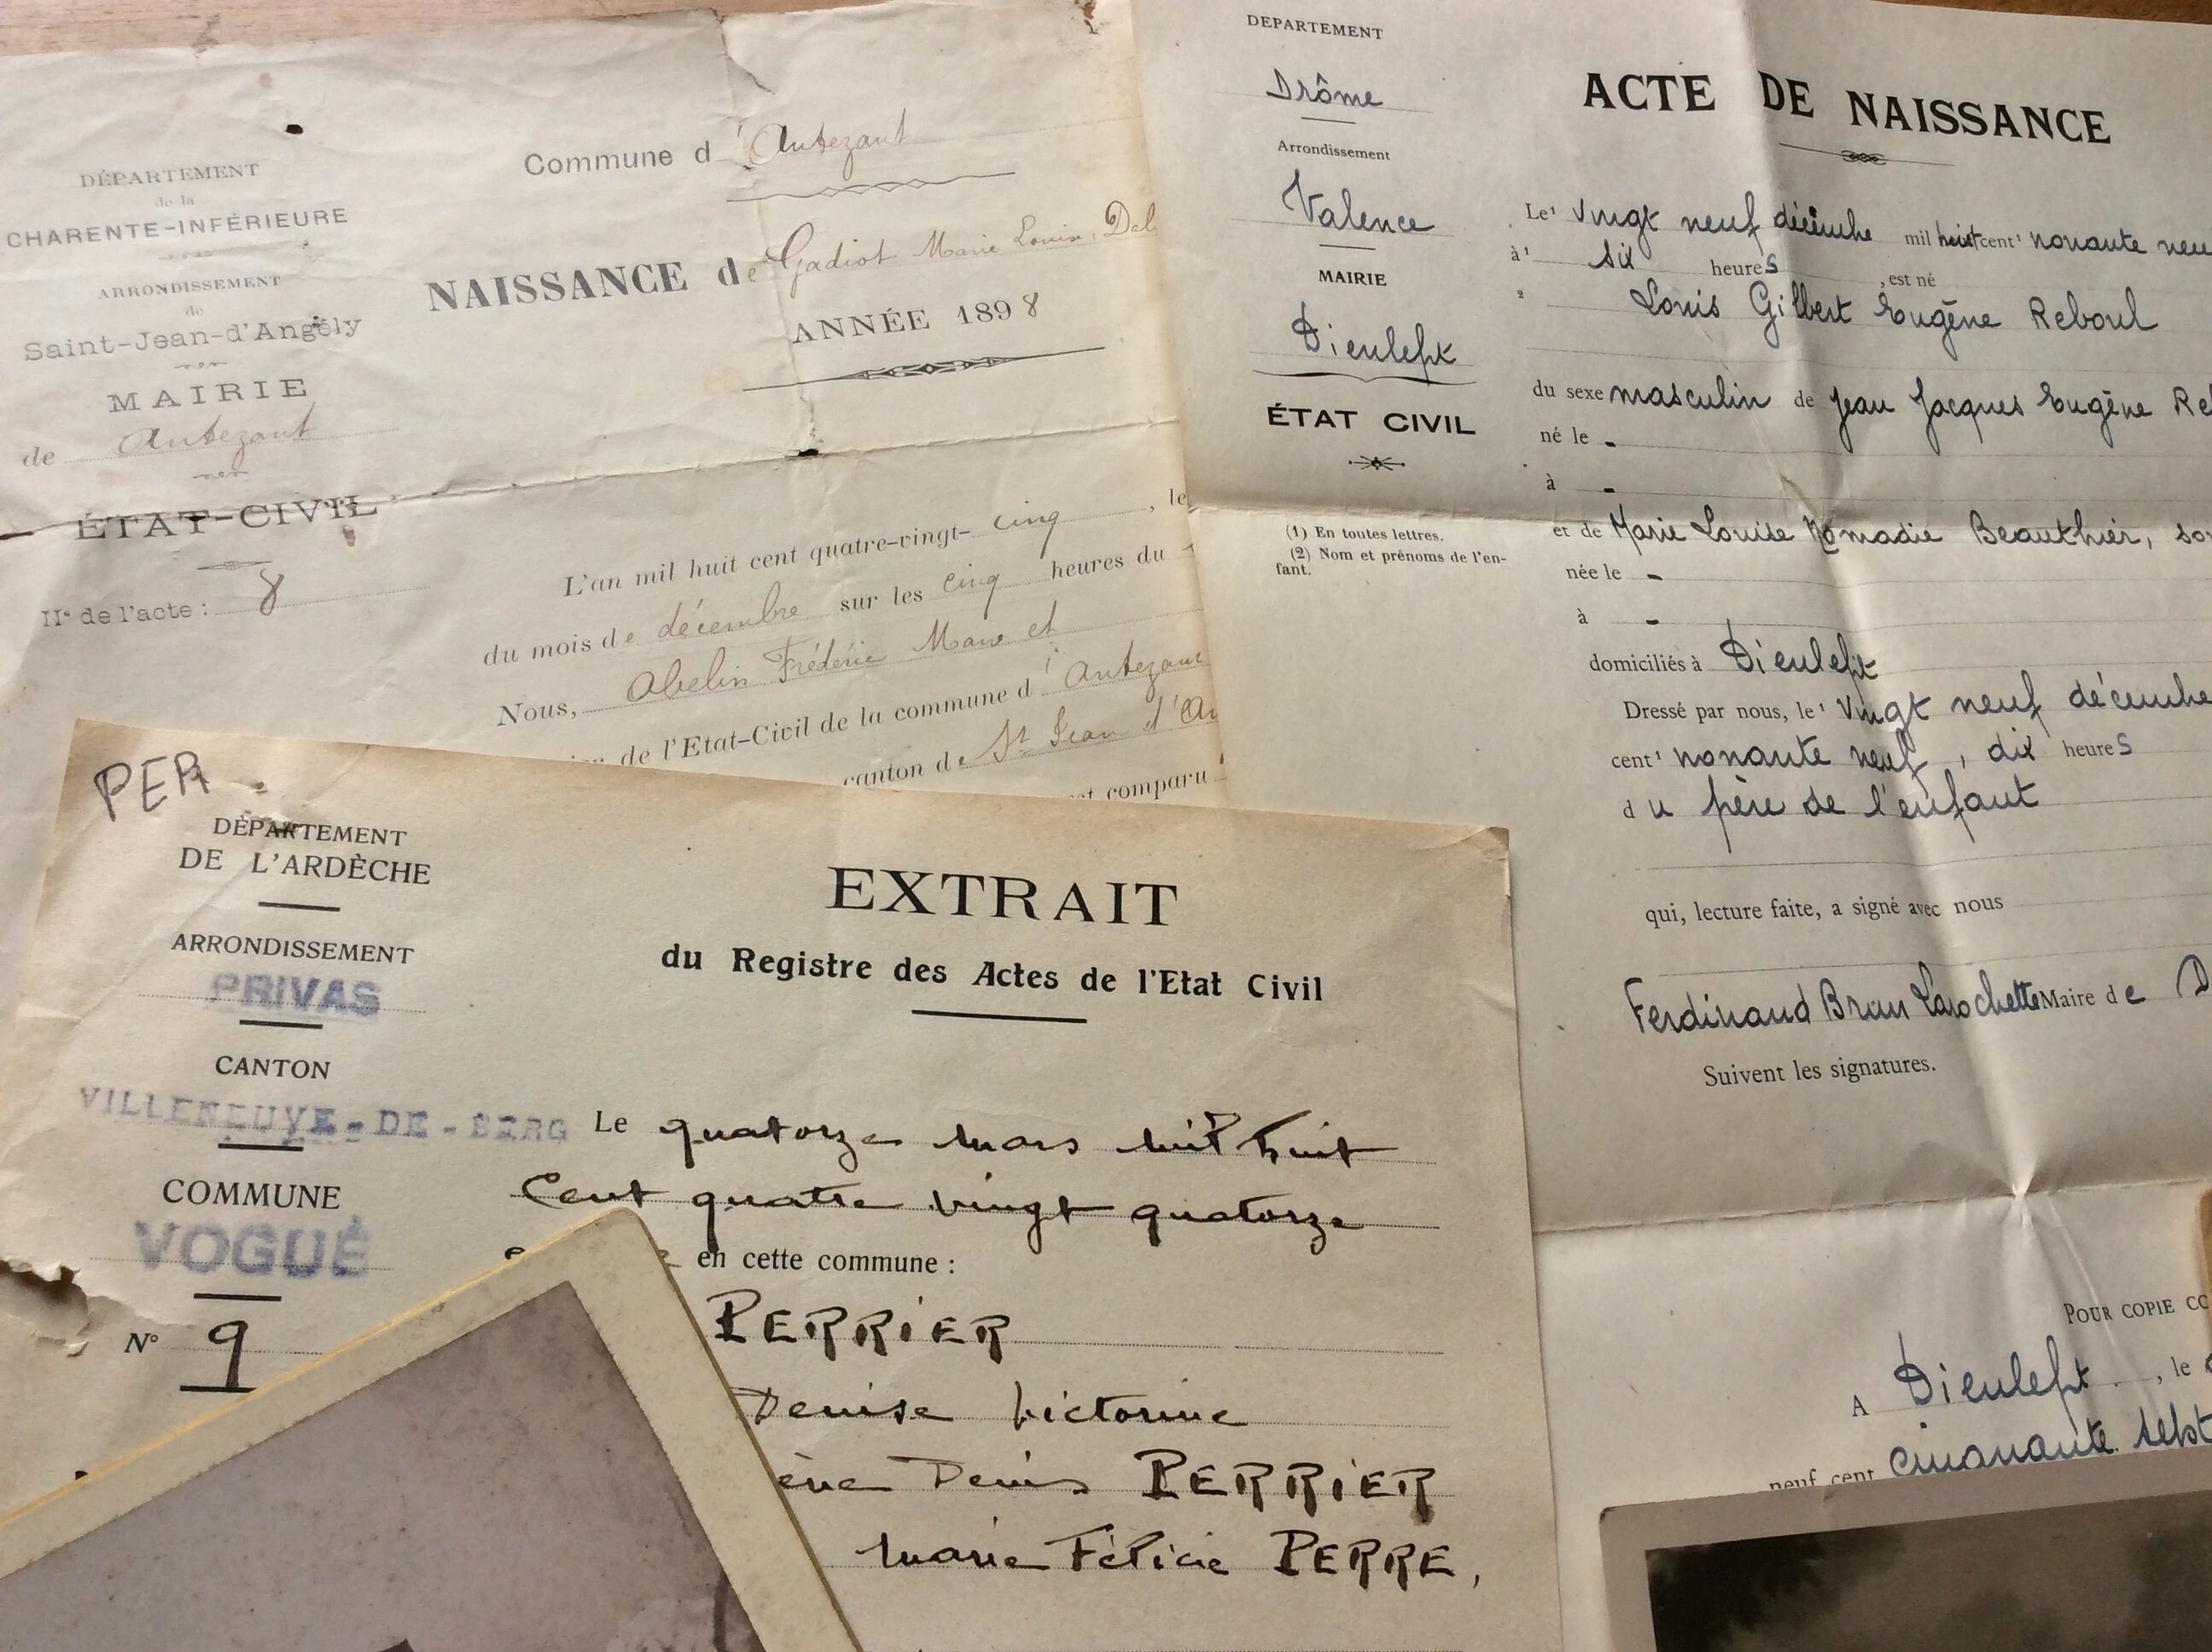 DÉPARTEMENT
de la
CHARENTE-INFÉRIEURE
ARRONDISSEMENT
de
Saint-Jean-d'Angély
MAIRIE
de Antezant
ÉTAT-CIVIL
N° de l'acte : 8
Commune d'Antezant
NAISSANCE de Gadiot Marie Louise, Del
ANNÉE 1898
L'an mil huit cent quatre-vingt-cinq, le
du mois de décembre sur les cinq heures du
Nous, Abelin Frédéric Marie et
de l'Etat-Civil de la commune d'Antezant
canton de St Jean d'An
comparu
DEPARTEMENT
Drôme
Arrondissement
Valence
MAIRIE
Dieulefit
ÉTAT CIVIL
(1) En toutes lettres.
(2) Nom et prénoms de l'en-
fant.
ACTE DE NAISSANCE
Le¹ vingt neuf décembre mil huit cent¹ nonante neu
à¹ six heures, est né
² Louis Gilbert Eugène Reboul
du sexe masculin de Jean Jacques Eugène Re
né le -
à -
et de Marie Louise Nomadie Beauthier, so
née le -
à -
domiciliés à Dieulefit
Dressé par nous, le¹ vingt neuf décembre
cent¹ nonante neuf, dix heures
du père de l'enfant
qui, lecture faite, a signé avec nous
Ferdinand Brun Larochette Maire de D
Suivent les signatures.
POUR COPIE CO
A Dieulefit, le
neuf cent cinquante sept
PER
DÉPARTEMENT
DE L'ARDÈCHE
ARRONDISSEMENT
PRIVAS
CANTON
VILLENEUVE-DE-BERG
COMMUNE
VOGUÉ
N° 9
EXTRAIT
du Registre des Actes de l'Etat Civil
Le quatorze mars mil huit
Cent quatre vingt quatorze
en cette commune :
PERRIER
Denise Victorine
ène Denis PERRIER
Marie Félicie PERRE,